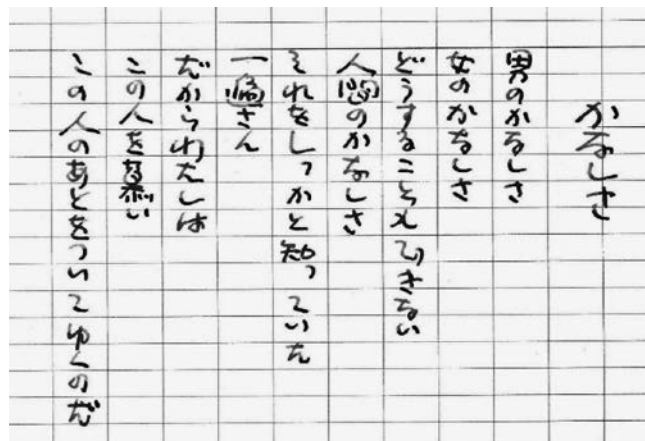 かなしさ
男のかなしさ
女のかなしさ
どうすることもできない
人間のかなしさ
それをしっかと知っていた
一遍さん
だからわたしは
この人を慕い
この人のあとをついてゆくのだ